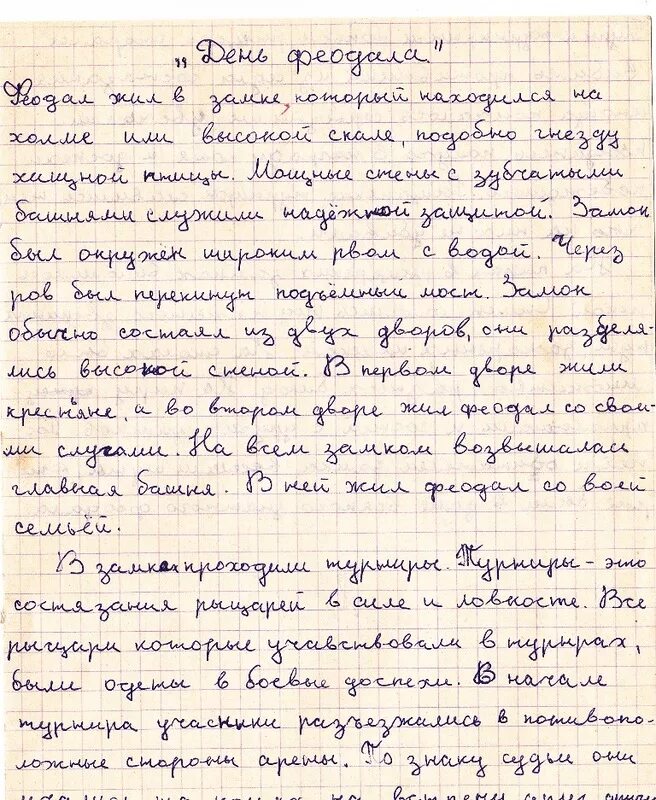 „День феодала"
Феодал жил в замке, который находился на
холме или высокой скале, подобно гнезду
хищной птицы. Мощные стены с зубчатыми
башнями служили надёжной защитой. Замок
был окружён широким рвом с водой. Через
ров был перекинут подъёмный мост. Замок
обычно состаял из двух дворов, они разделя-
лись высокой стеной. В первом дворе жили
кресняне, а во втором дворе жил феодал со свои-
ми слугами. На всем замком возвышалась
главная башня. В ней жил феодал со воей
семьёй.
В замках проходили турниры. Турниры - это
состязания рыцарей в силе и ловкосте. Все
рыцари которые учавствовали в турнрах,
были одеты в боевые доспехи. В начале
турнира учасники разъезжались в потивопо-
ложные стороны арены. По знаку судьи они
на